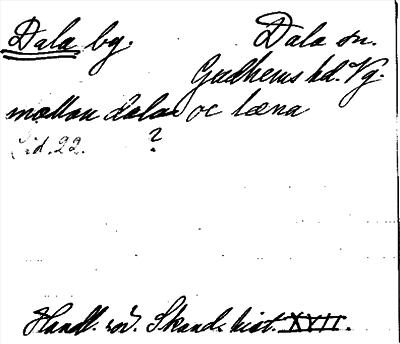 Dala by. Dala sn.
Gudhems hd. Vg.
mællan dalar oc læna
Sid. 22. ?
Handl. rör. Skand. hist. XVII.